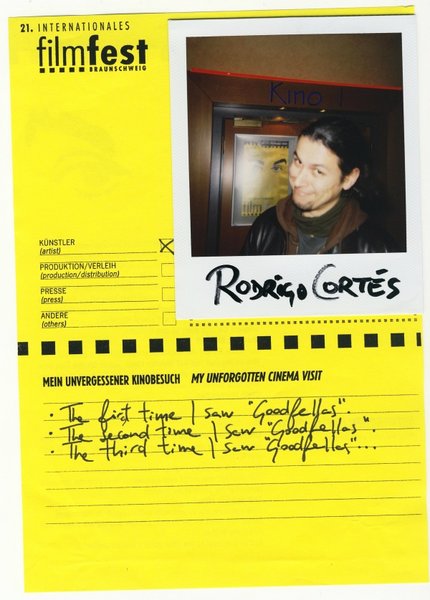 21. INTERNATIONALES
filmfest
BRAUNSCHWEIG
Kino 1
RODRIGO CORTÉS
KÜNSTLER
(artist)
PRODUKTION/VERLEIH
(production/distribution)
PRESSE
(press)
ANDERE
(others)
MEIN UNVERGESSENER KINOBESUCH MY UNFORGOTTEN CINEMA VISIT
· The first time I saw "Goodfellas".
· The second time I saw "Goodfellas".
· The third time I saw "Goodfellas"...